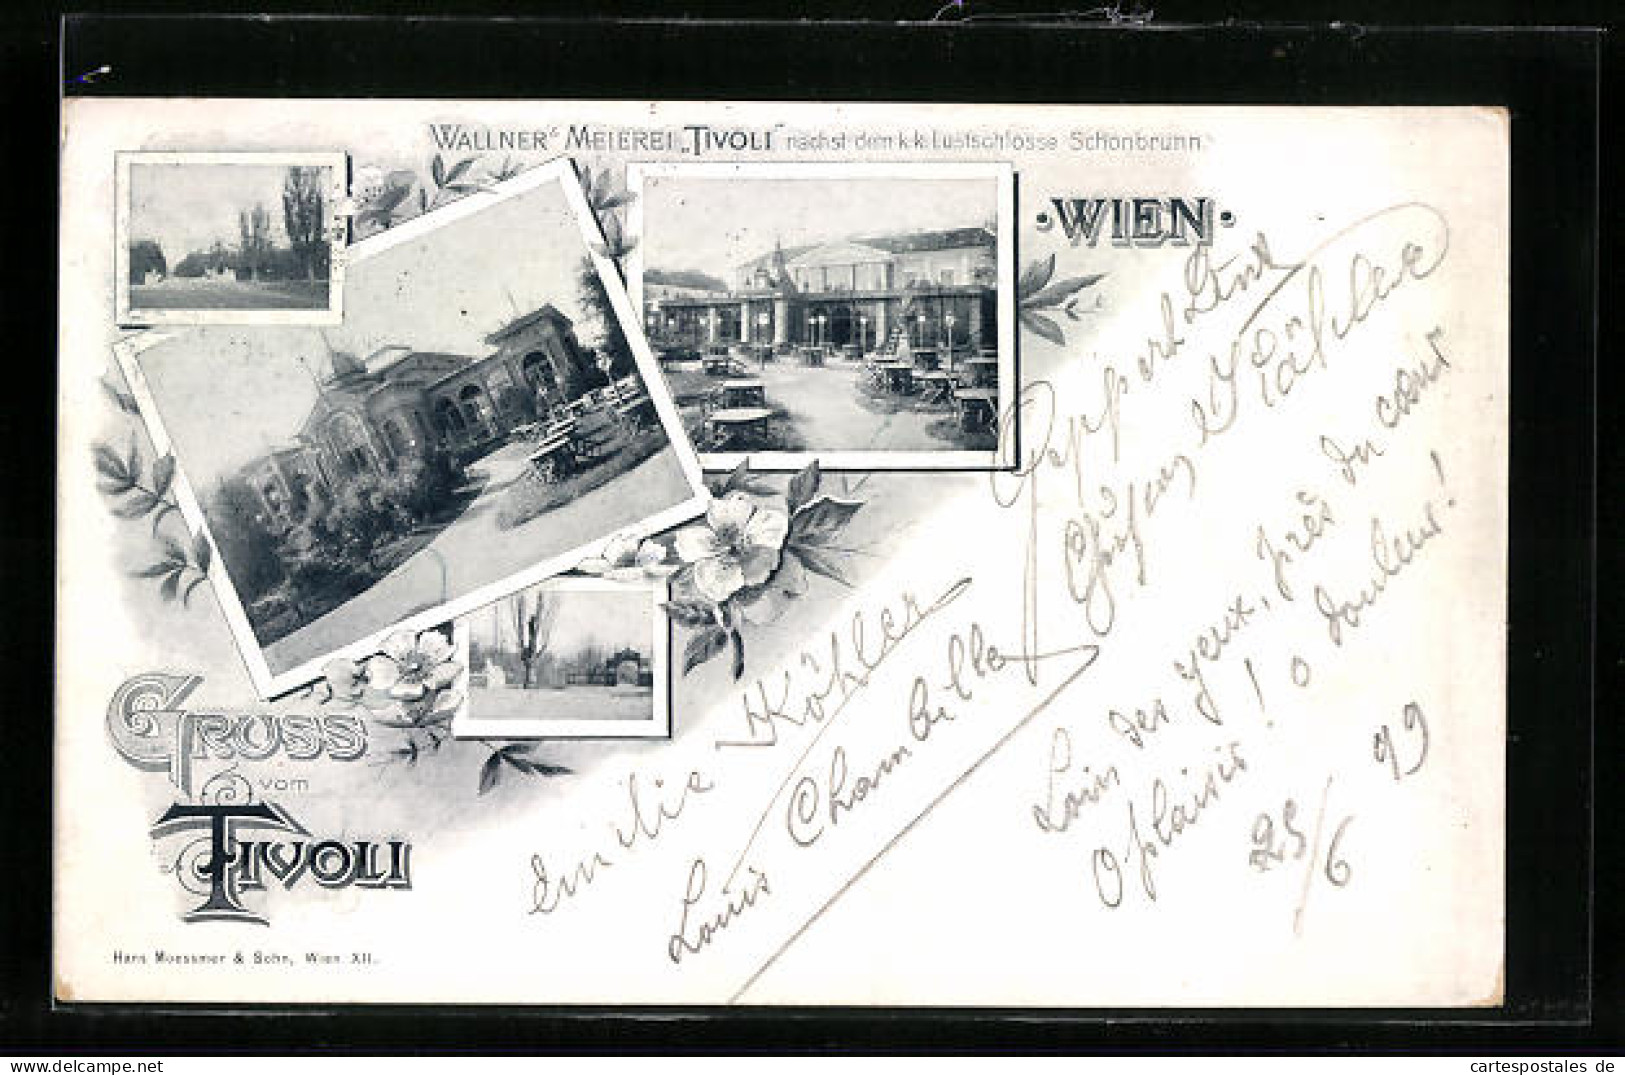 WALLNER'S MEIEREI „TIVOLI“ nächst dem k.k. Lustschlosse Schönbrunn.
• WIEN •
GRUSS
vom
TIVOLI
Hans Moessmer & Sohn, Wien XII.
Emilie Köhler
Louis Chambille
Köhler
Loin des yeux, près du cœur
O plaisir! O douleur!
25/6 99
cartespostales de